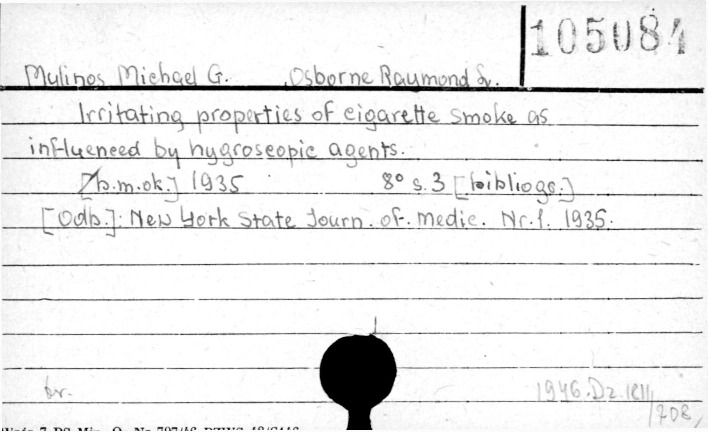 105084
Mulinos Michael G. Osborne Raymond L.
Irritating properties of cigarette smoke as
influenced by hygroscopic agents.
[b.m.ok.] 1935 8° s. 3 [bibliogr.]
[Odb.]: New York State Journ. of. medic. Nr. 1. 1935.
br. 1946.Dz.
708